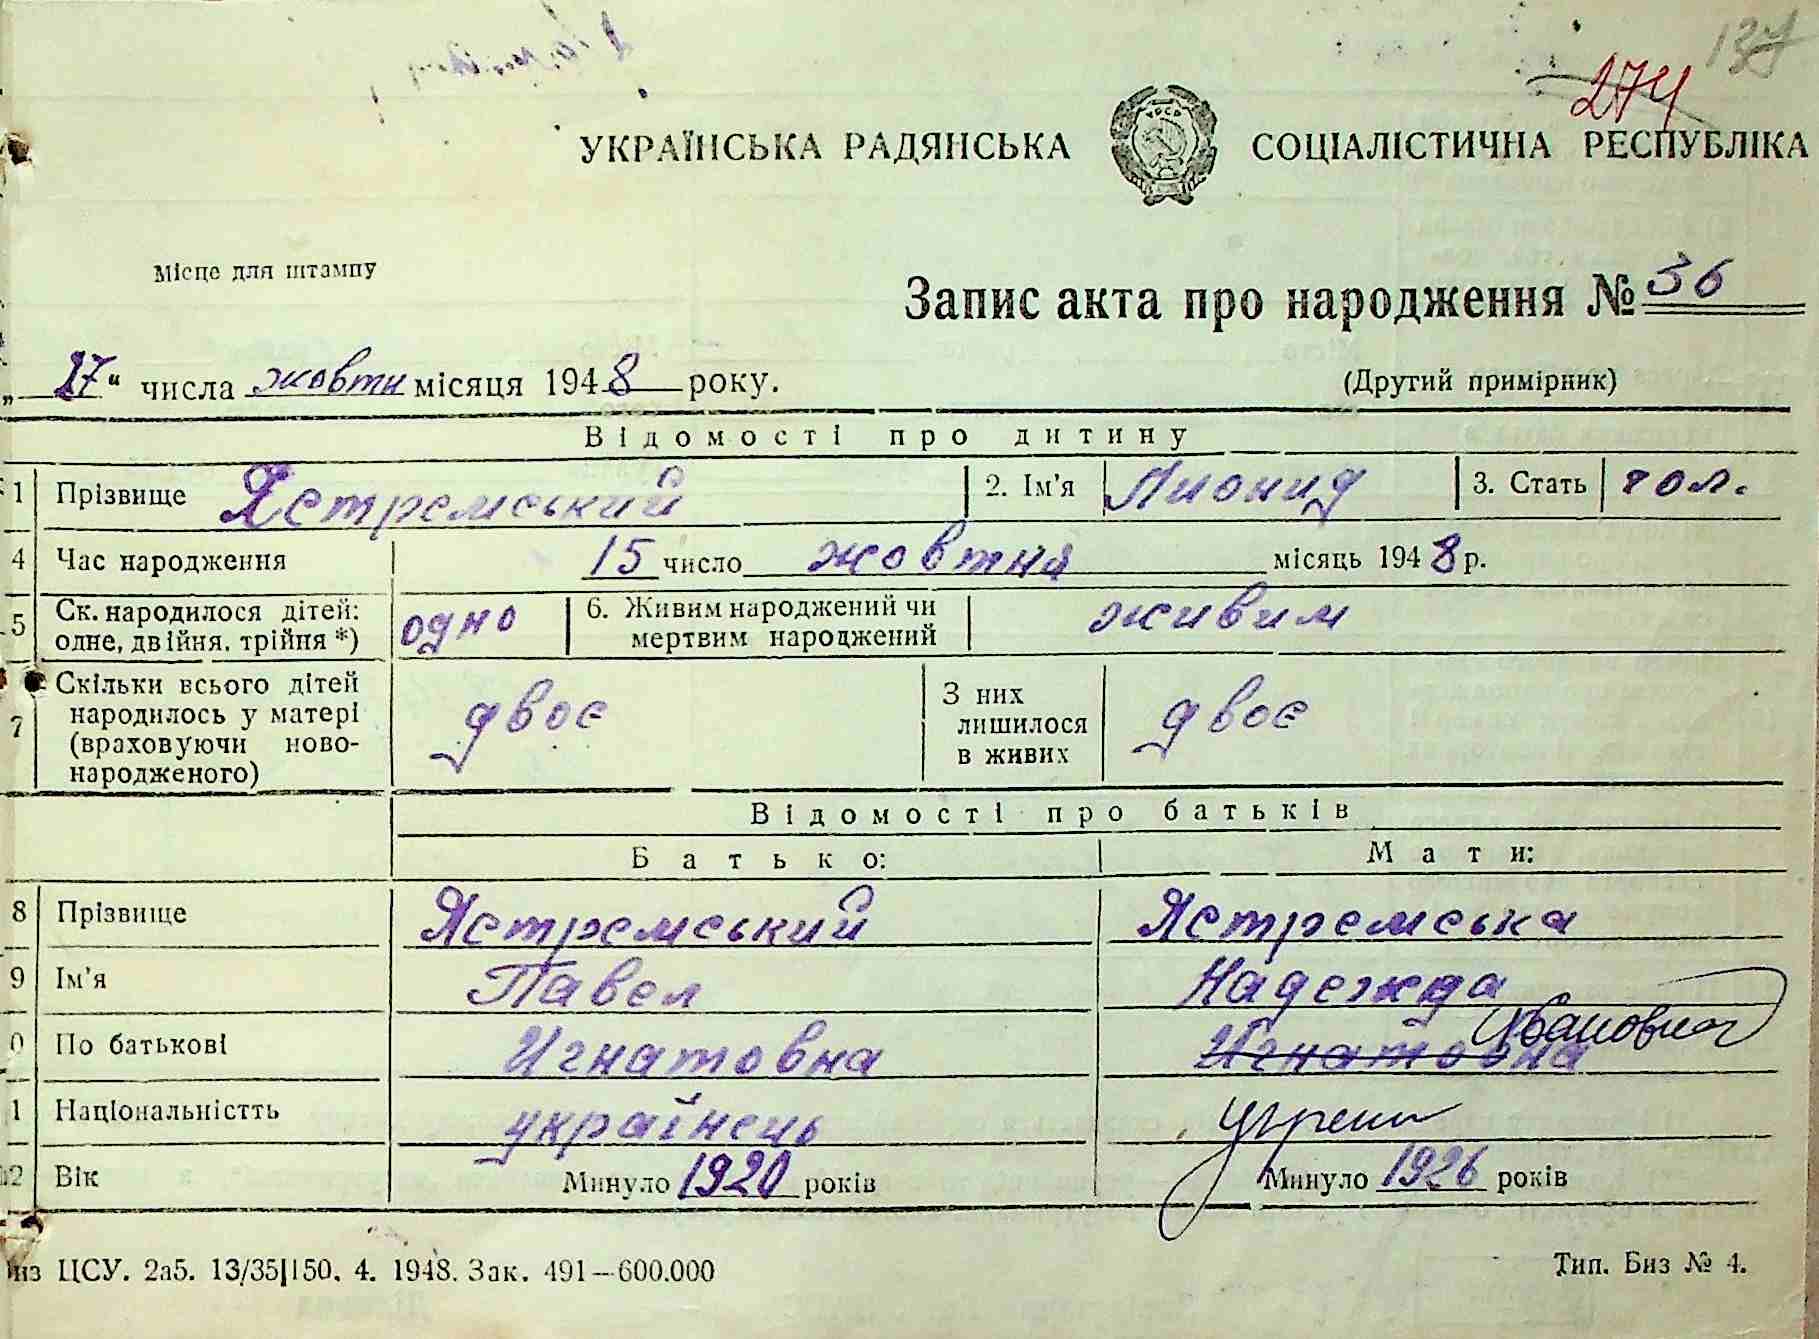 137
274
УКРАЇНСЬКА РАДЯНСЬКА СОЦІАЛІСТИЧНА РЕСПУБЛІКА
УРСР
Місце для штампу
Запис акта про народження № 36
„27“ числа жовтня місяця 1948 року.
(Другий примірник)
Відомості про дитину
1 Прізвище Ястремський 2. Ім'я Лионид 3. Стать чол.
4 Час народження 15 число жовтня місяць 1948 р.
5 Ск. народилося дітей: одне, двійня, трійня *) одно 6. Живим народжений чи мертвим народжений живим
7 Скільки всього дітей народилось у матері (враховуючи ново-народженого) двоє З них лишилося в живих двоє
Відомості про батьків
Батько: Мати:
8 Прізвище Ястремський Ястремська
9 Ім'я Павел Надежда
Ивановна
0 По батькові Игнатовна Игнатовна
1 Національністть українець
2 Вік Минуло 1920 років Минуло 1926 років
из ЦСУ. 2а5. 13/35|150. 4. 1948. Зак. 491—600.000 Тип. Биз № 4.